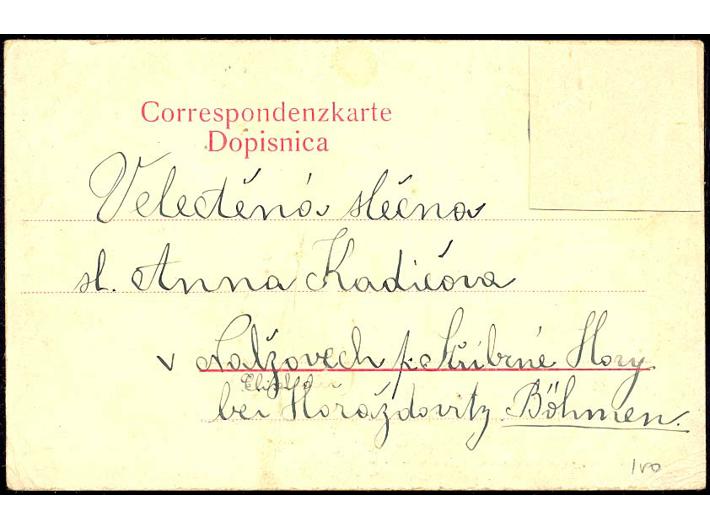 Correspondenzkarte
Dopisnica
Velectěná slečna
sl. Anna Kadićova
v Nalžovech p. Stříbrné Hory
bei Horaždovitz Böhmen.